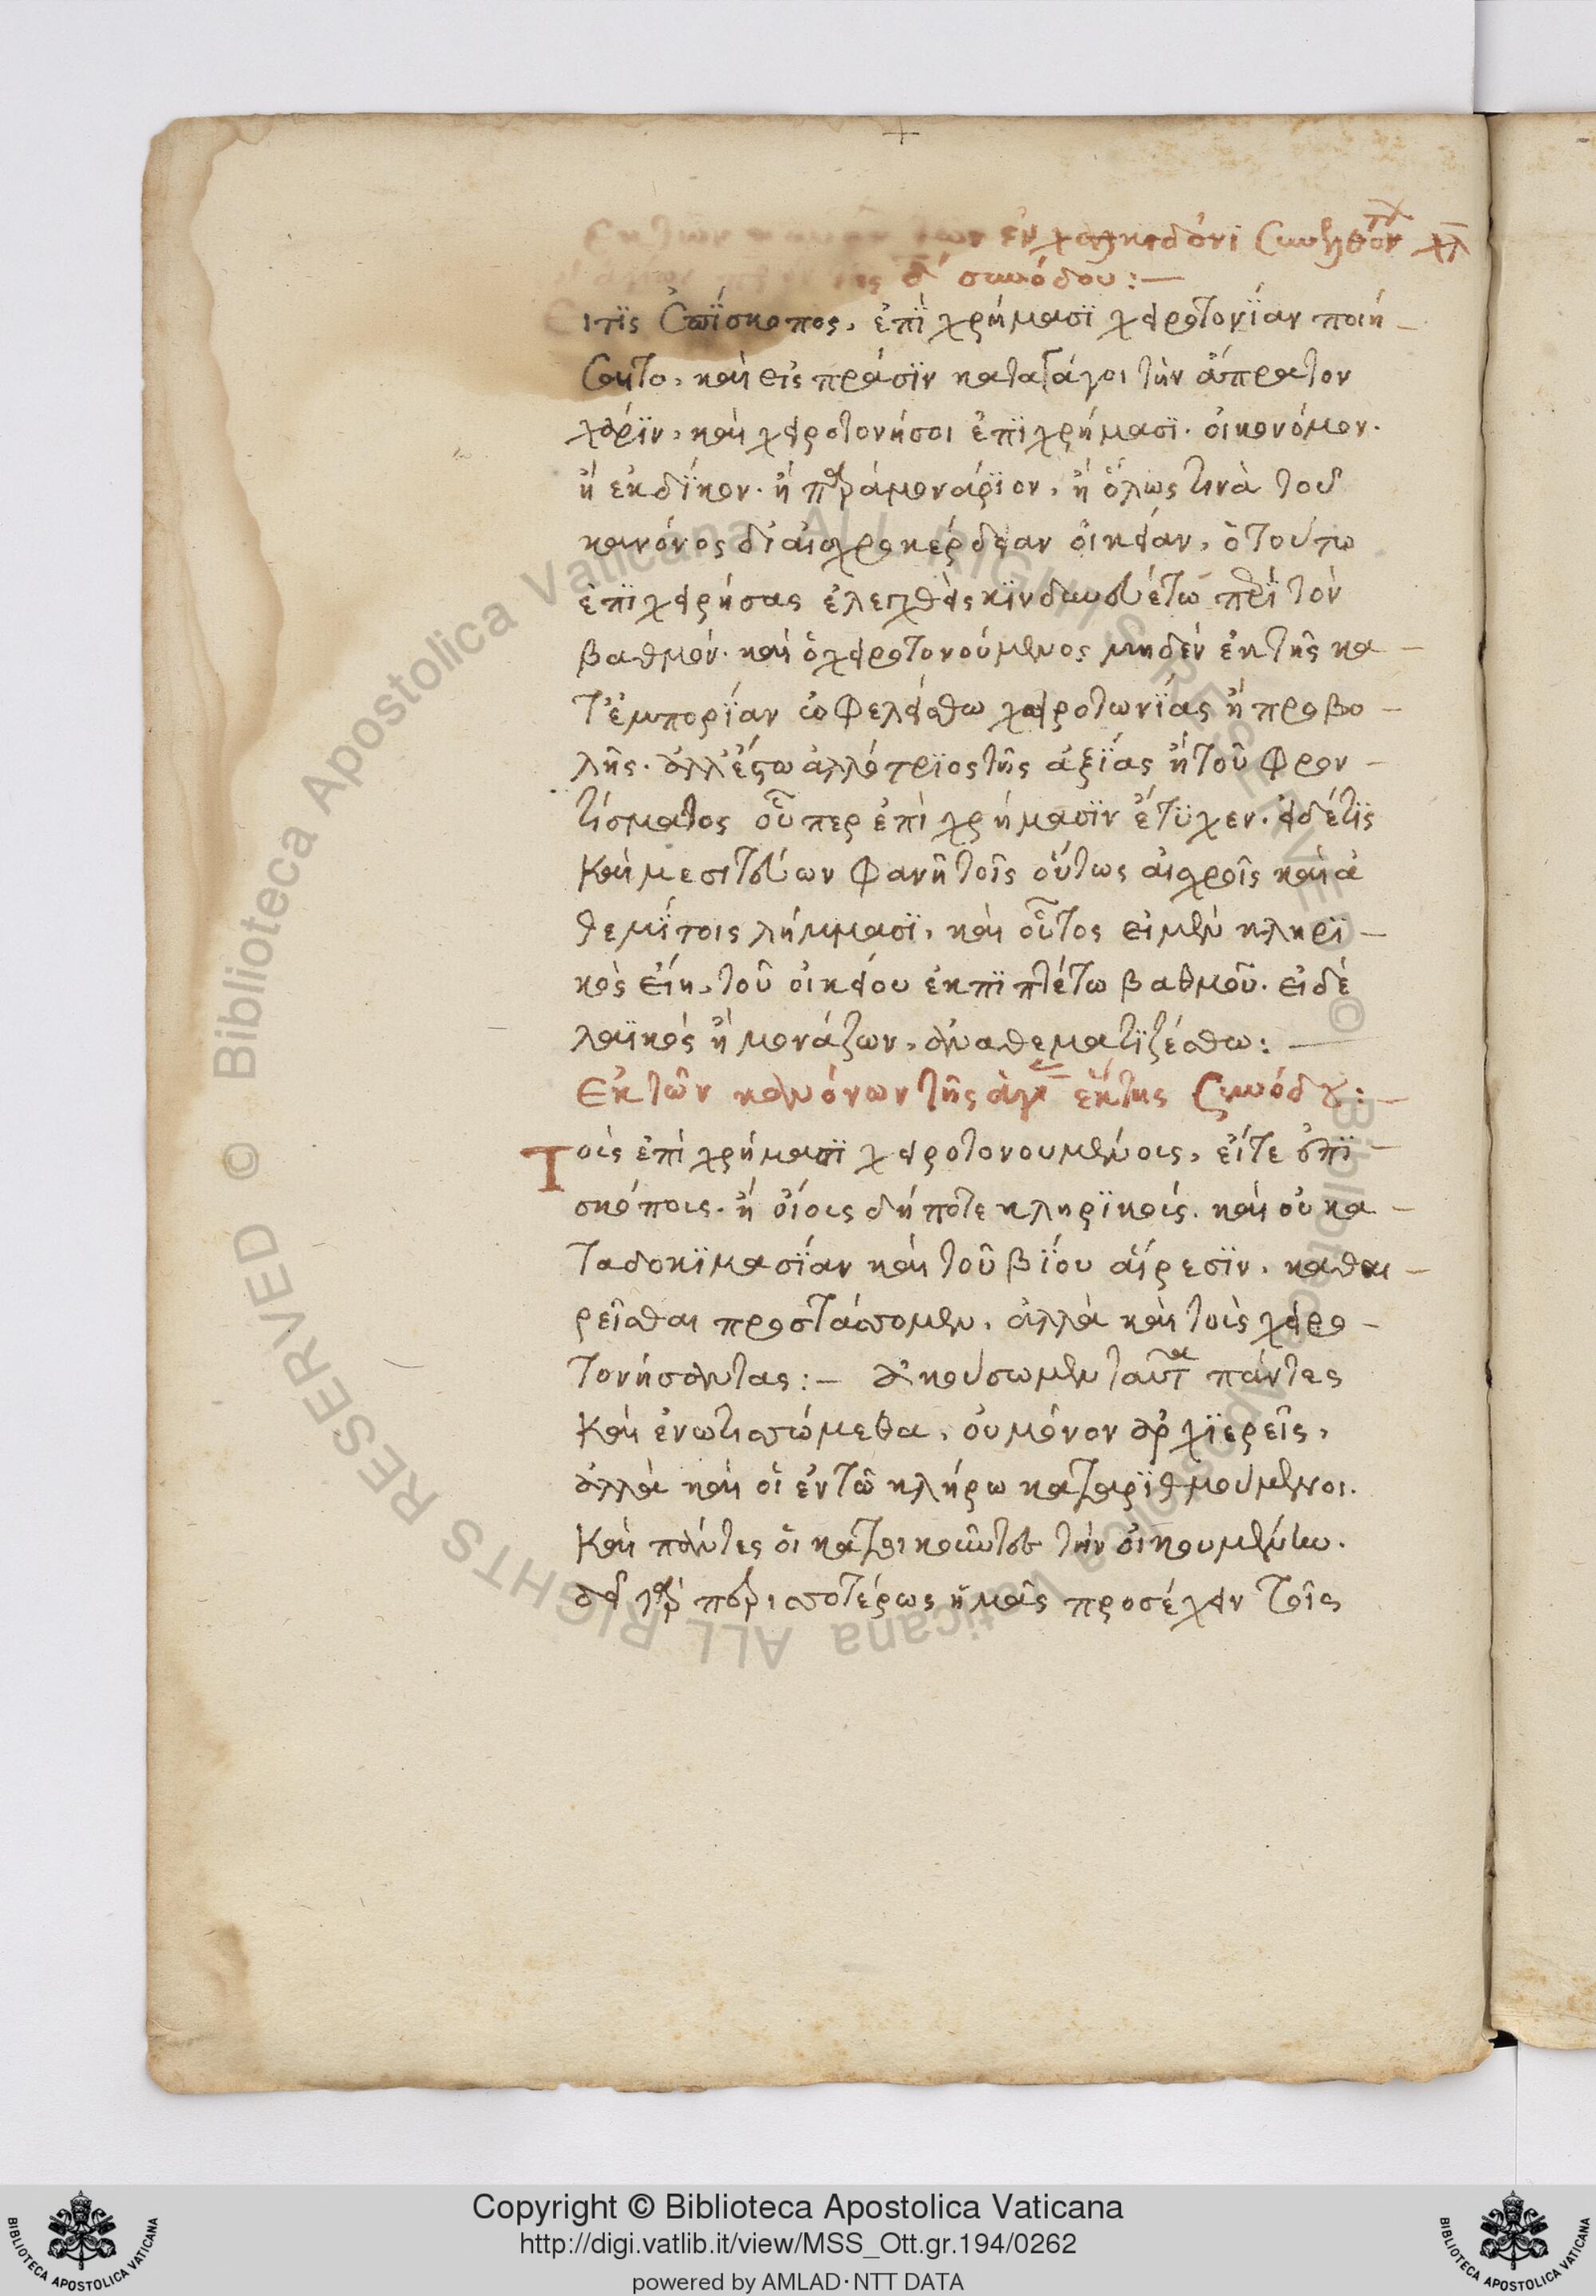 Ἐκ τῶν κανόνων τῶν ἐν χαλκηδόνι συνελθόντων χλ
τῆς δ´ συνόδου:—
Εἴ τϊς ἐπΐσκοπος, ἐπῒ χρήμασϊ χειροτονΐαν ποιή-
σαιτο, καὶ εἰς πράσϊν κατατάγοι τὴν ἄπρατον
χάρϊν, καὶ χειροτονήσοι ἐπῒ χρήμασϊ· οἰκονόμον·
ἢ ἐκδΐκον· ἢ παραμονάρϊον, ἢ ὅλως τινὰ τοῦ
κανόνος δι᾽ αἰσχροκέρδειαν οἰκείαν, ὁ τούτω
ἐπῒ χειρήσας ἐλεγχθεὶς κϊνδυνευέτω περῒ τὸν
βαθμόν· καὶ ὁ χειροτονούμενος μηδὲν ἐκ τῆς κα-
τ᾽ ἐμπορΐαν ὠφελείσθω χειροτωνΐας ἢ προβο-
λῆς· ἀλλ᾽ ἔστω ἀλλότρϊος τῆς ἀξΐας ἢ τοῦ φρον-
τίσματος οὗπερ ἐπὶ χρήμασϊν ἔτϋχεν· εἰ δέ τϊς
καὶ μεσιτεύων φανῆ τοῖς οὕτως αἰσχροῖς καὶ ἀ
θεμΐτοις λήμμασϊ, καὶ οὗτος εἰ μὲν κληρϊ-
κὸς εἴη, τοῦ οἰκείου ἐκπϊπτέτω βαθμοῦ· εἰ δὲ
λαϊκὸς ἢ μονάζων, ἀναθεματϊζέσθω:—
Ἐκ τῶν κανόνων τῆς ἁγίας ἕκτης συνόδου:—
Τοὶς ἐπὶ χρήμασϊ χειροτονουμένοις, εἴτε ἐπϊ-
σκόποις· ἢ οἵοις δήποτε κληρϊκοίς· καὶ οὐ κα-
τα δοκϊμασΐαν καὶ τοῦ βΐου αἵρεσϊν, καθαι-
ρεῖσθαι προστάσσομεν, ἀλλὰ καὶ τοὺς χειρο-
τονήσαντας:— ἀκούσωμεν ταῦτα πάντες
καὶ ἐνωτισώμεθα, οὐ μόνον ἀρχϊερεῖς,
ἀλλὰ καὶ οἱ ἐν τῶ κλήρω καταρϊθμούμενοι.
καὶ πάντες οἱ κατοικοῦντες τὴν οἰκουμένην.
δεῖ γὰρ περισσοτέρως ἡμᾶς προσέχειν τοῖς
Copyright © Biblioteca Apostolica Vaticana
http://digi.vatlib.it/view/MSS_Ott.gr.194/0262
powered by AMLAD·NTT DATA
BIBLIOTECA APOSTOLICA VATICANA
BIBLIOTECA APOSTOLICA VATICANA
Biblioteca Apostolica Vaticana ALL RIGHTS RESERVED ©
Biblioteca Apostolica Vaticana ALL RIGHTS RESERVED ©